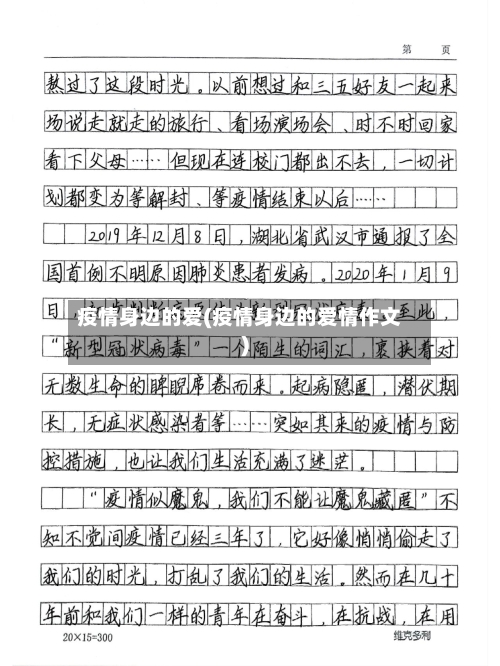 第 页
熬过了这段时光。以前想过和三五好友一起来
场说走就走的旅行、看场演场会、时不时回家
看下父母……但现在连校门都出不去，一切计
划都变为等解封、等疫情结束以后……
2019年12月8日，湖北省武汉市通报了全
国首例不明原因肺炎患者发病。2020年1月9
日，至此，
疫情身边的爱(疫情身边的爱情作文
)
“新型冠状病毒”一个陌生的词汇，裹挟着对
无数生命的睥睨席卷而来。起病隐匿，潜伏期
长，无症状感染者等……突如其来的疫情与防
控措施，也让我们生活充满了迷茫。
“疫情似魔鬼，我们不能让魔鬼藏匿”不
知不觉间疫情已经三年了，它好像悄悄偷走了
我们的时光，打乱了我们的生活。然而在几十
年前和我们一样的青年在奋斗，在抗战，在用
20×15=300
维克多利